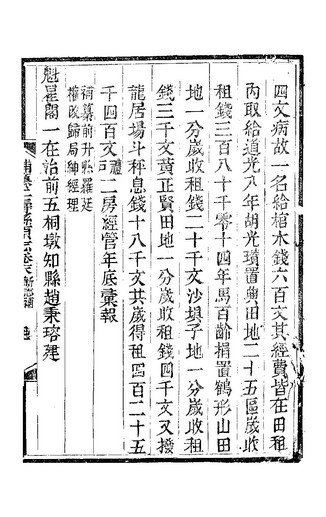 四文病故一名給棺木錢六百文其經費皆在田租
內取給道光八年胡光瓚置典田地二十五區歲收
租錢三百八十千零十四年馬百齡捐置鶴形山田
地一分歲收租錢二十千文沙埧子地一分歲收租
錢三千文黃正賢田地一分歲收租錢四千文又撥
龍居場斗秤息錢十八千文共歲得租四百二十五
千四百文司禮二房經管年底彙報
補纂前升縣羅廷
權改歸局紳經理
魁星閣一在治前五桐墩知縣趙秉瑢建